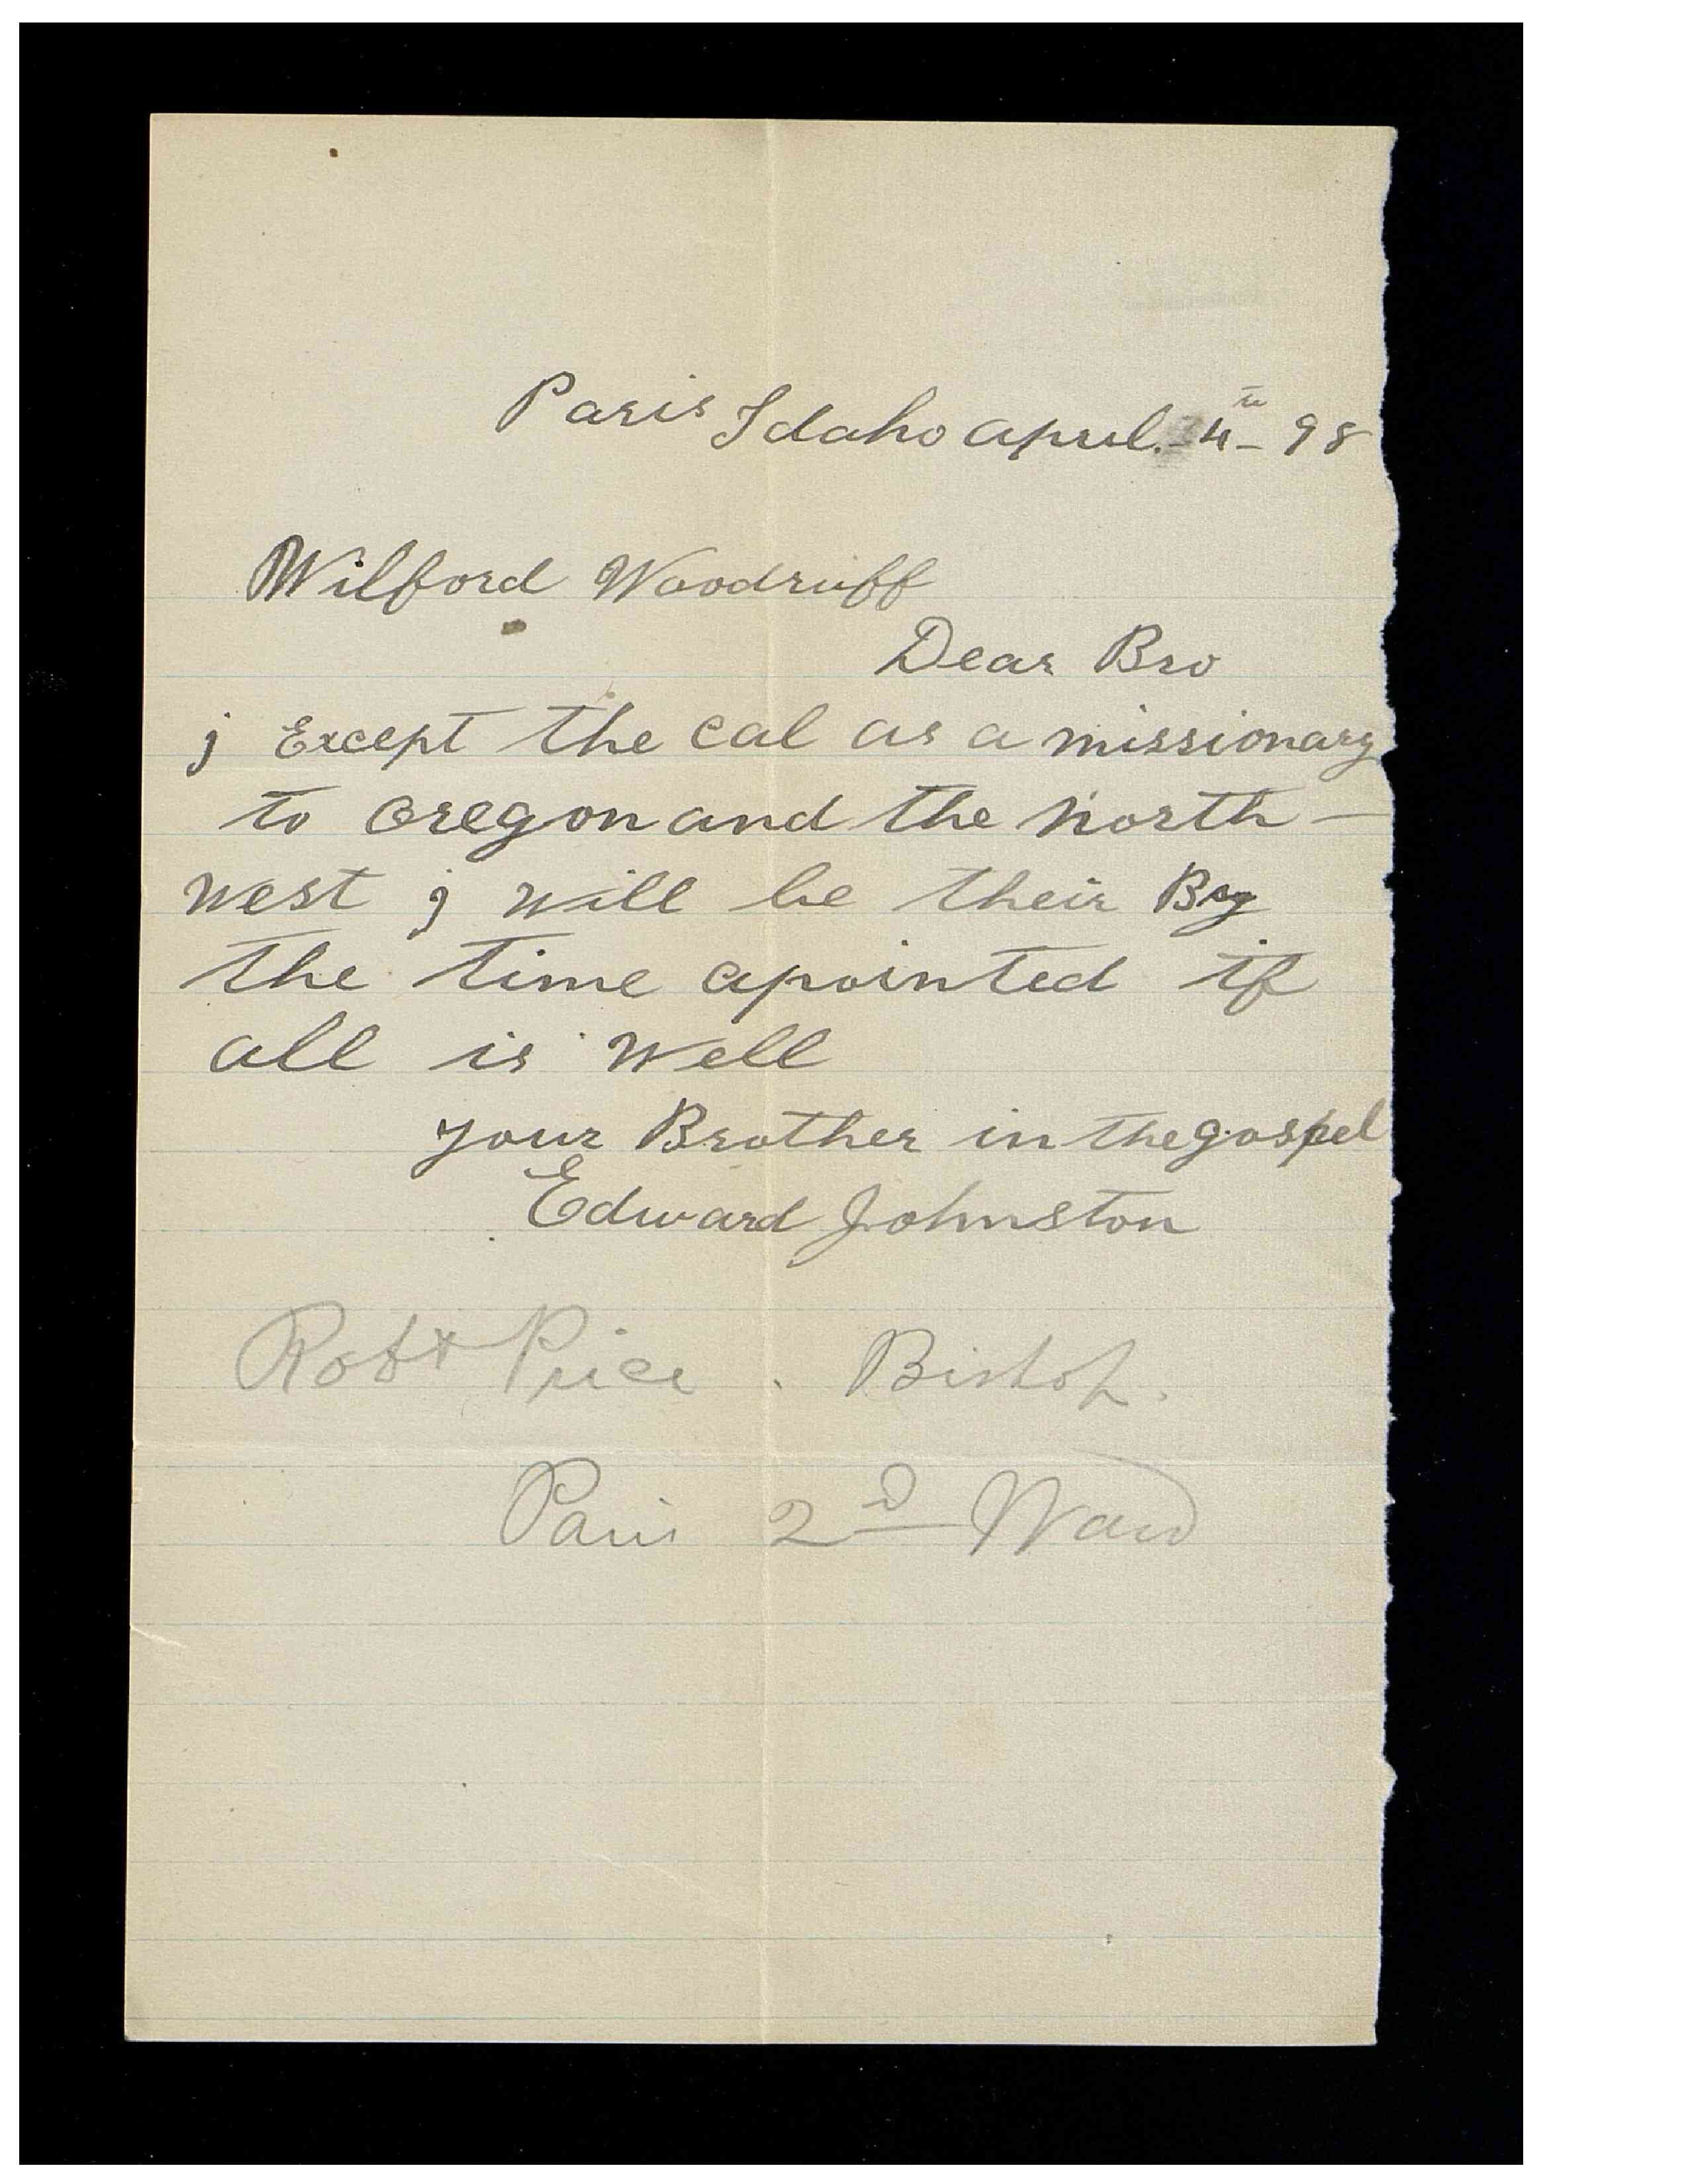 Paris Idaho apriel. 4th - 98
Wilford Woodruff
Dear Bro
j Except the cal as a missionary
to oregon and the north -
west j will be their By
the time apointed if
all is well
your Brother in the gospel
Edward Johnston
Robt Price . Bishop.
Paris 2D Ward